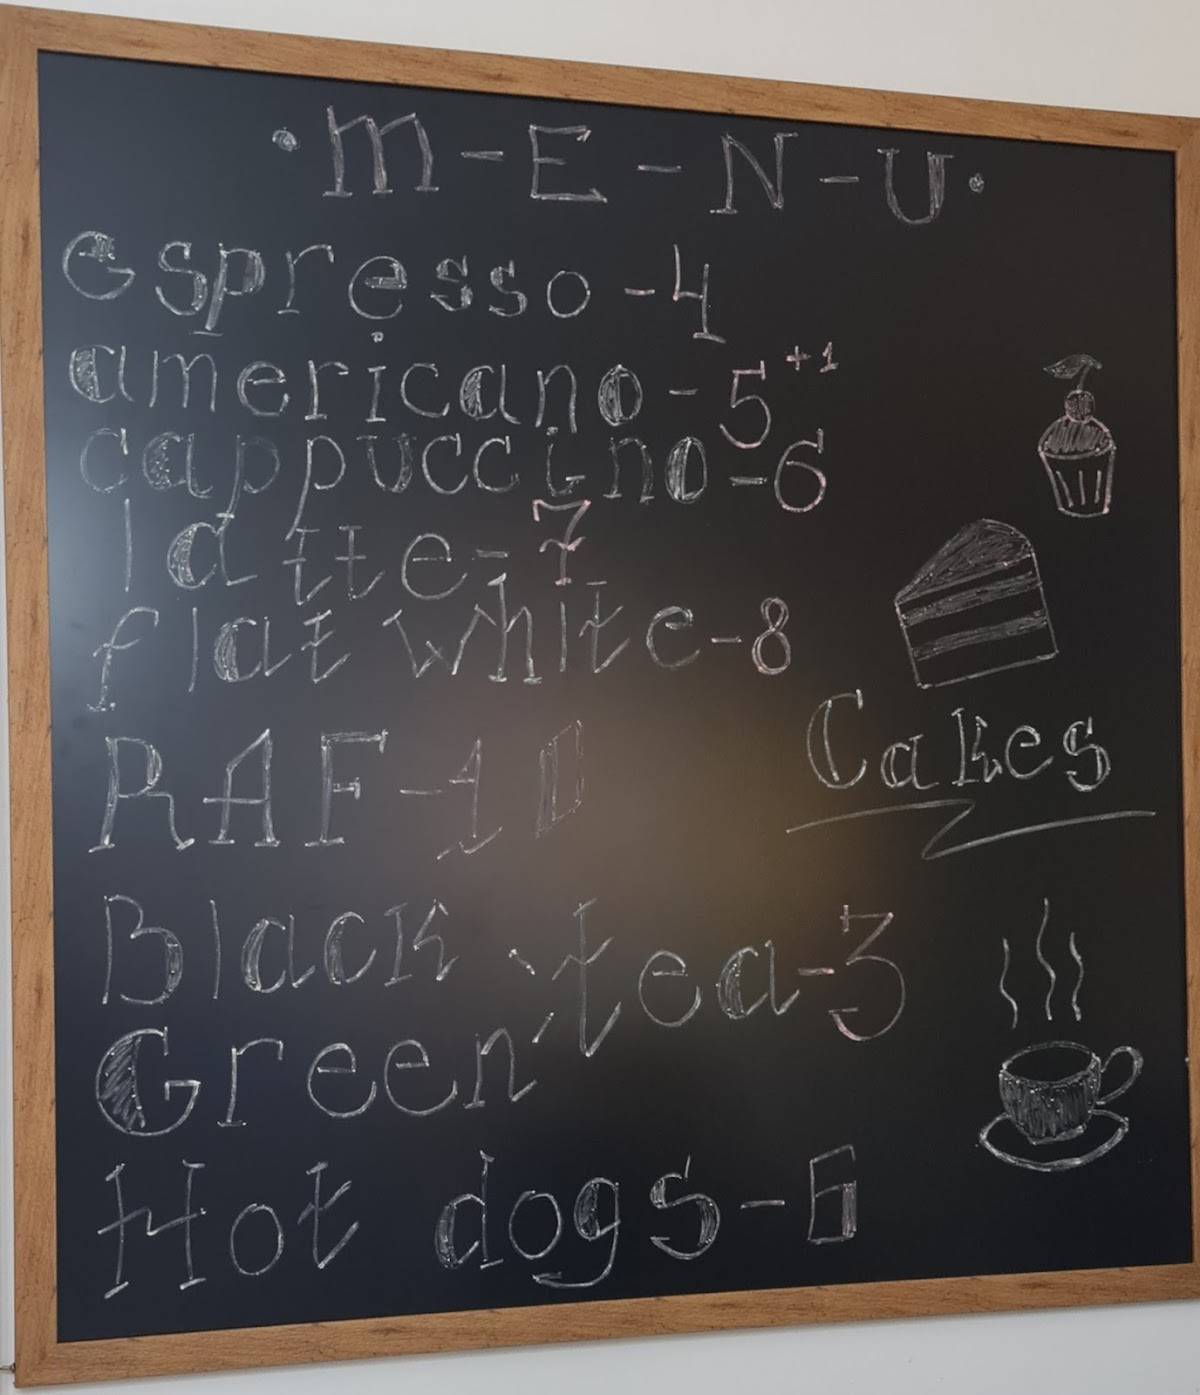 ·M-E-N-U·
espresso-4
americano-5 +1
cappuccino-6
latte-7
flat white-8
RAF-10
Cakes
Black tea-3
Green
Hot dogs-6